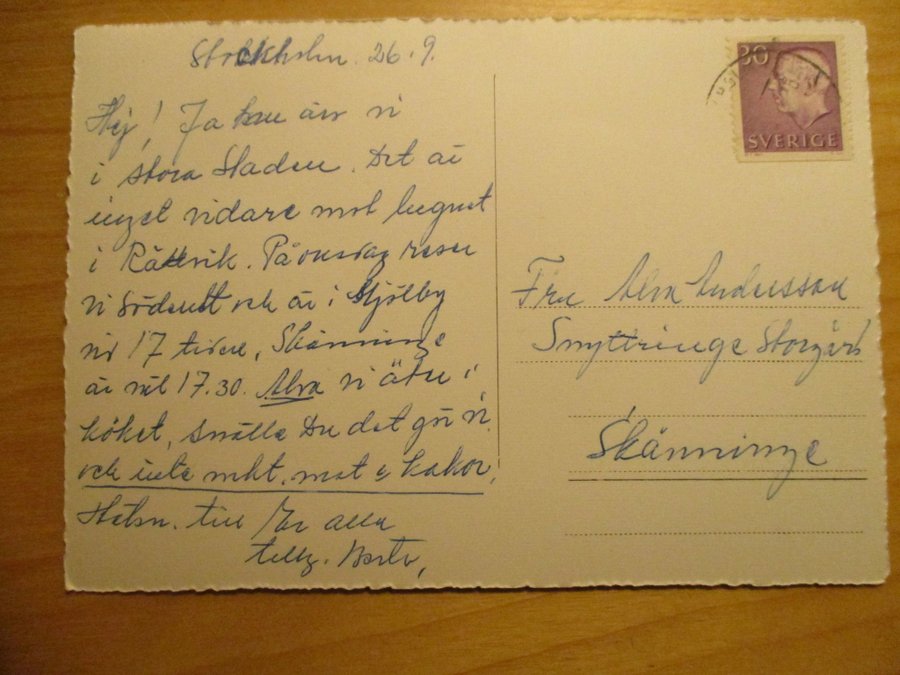 Stockholm. 26.9.
Hej! Ja här är vi
i stora staden. Det är
inget vidare mot lugnet
i Rättvik. På onsdag reser
vi söderut och är i Mjölby
vid 17 tiden, Skänninge
är väl 17.30. Alva vi äter i
köket, snälla Du det gör vi
och inte mkt. mat & kakor,
Hälsn. till Er alla
30
SVERIGE
Fru Alva Andersson
Smyttringe Storgård
Skänninge